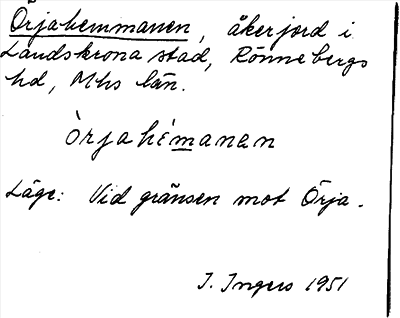 Örjahemmanen, åkerjord i
Landskrona stad, Rönnebergs
hd, Mhs län.
òrjahémanan
Läge: Vid gränsen mot Örja.
I. Ingers 1951